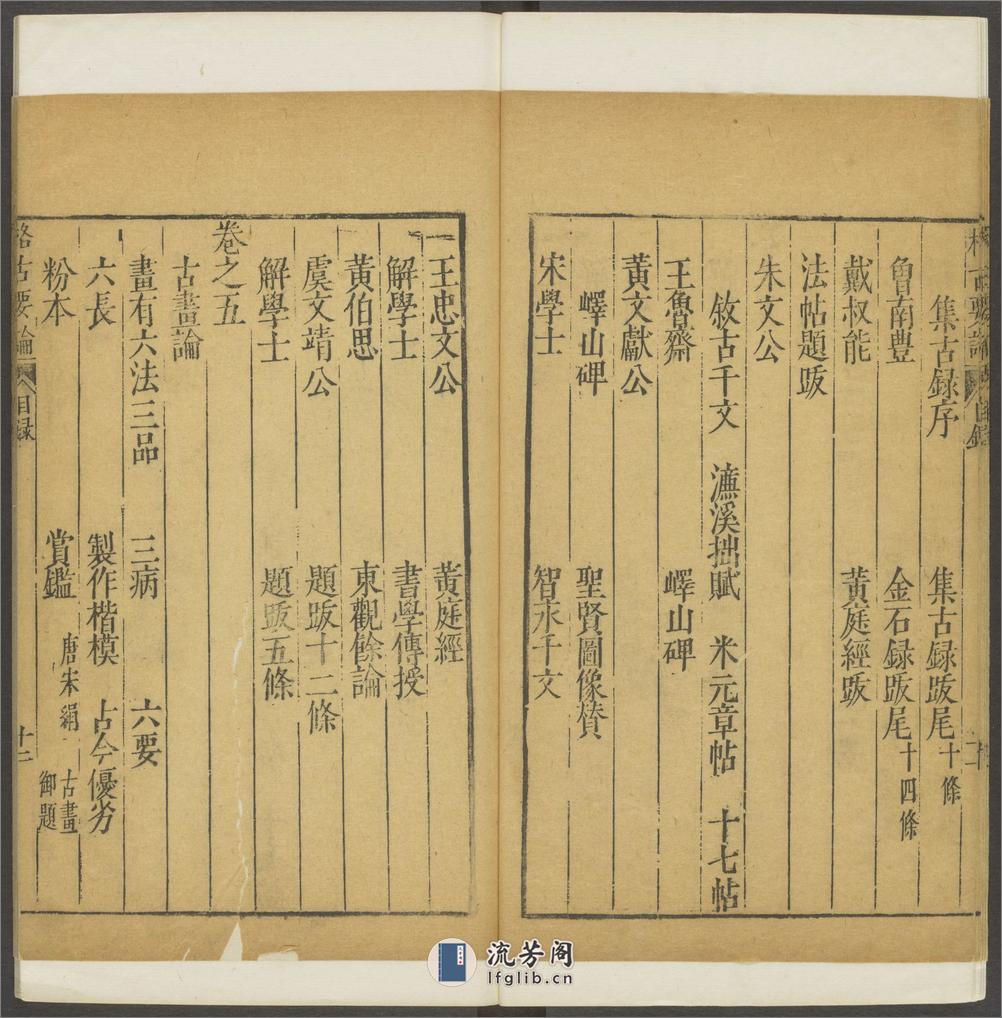 格古要論 目錄
集古録序 集古録跋尾十條
魯南豐 金石録跋尾十四條
戴叔能 黃庭經跋
法帖題跋
朱文公
敘古千文 濂溪拙賦 米元章帖 十七帖
王魯齋 嶧山碑
黃文獻公
嶧山碑 聖賢圖像賛
宋學士 智永千文
王忠文公 黃庭經
解學士 書學傳授
黃伯思 東觀餘論
虞文靖公 題跋十二條
解學士 題跋五條
卷之五
古畫論
畫有六法三品 三病 六要
六長 製作楷模 古今優劣
粉本 賞鑑 唐宋絹 古畫御題
格古要論 目録 十二
流芳阁
lfglib.cn